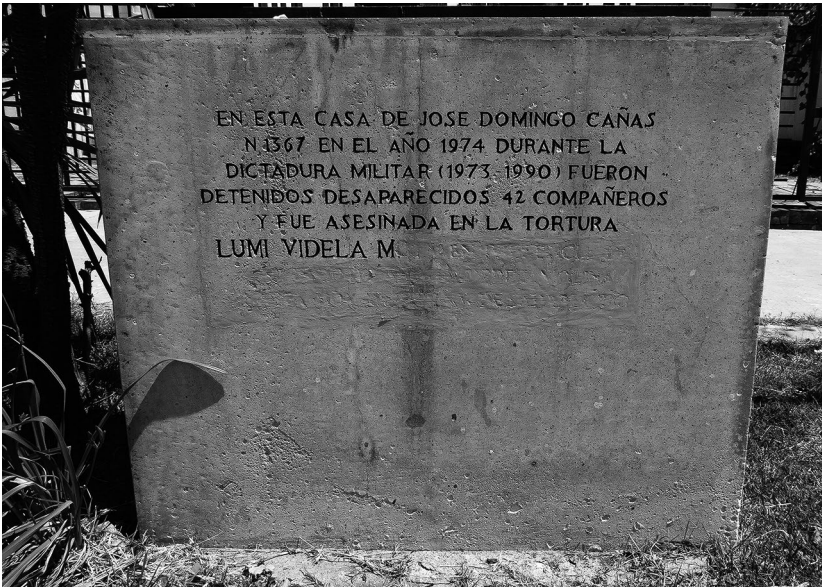 EN ESTA CASA DE JOSE DOMINGO CAÑAS
N 1367 EN EL AÑO 1974 DURANTE LA
DICTADURA MILITAR (1973-1990) FUERON
DETENIDOS DESAPARECIDOS 42 COMPAÑEROS
Y FUE ASESINADA EN LA TORTURA
LUMI VIDELA M.